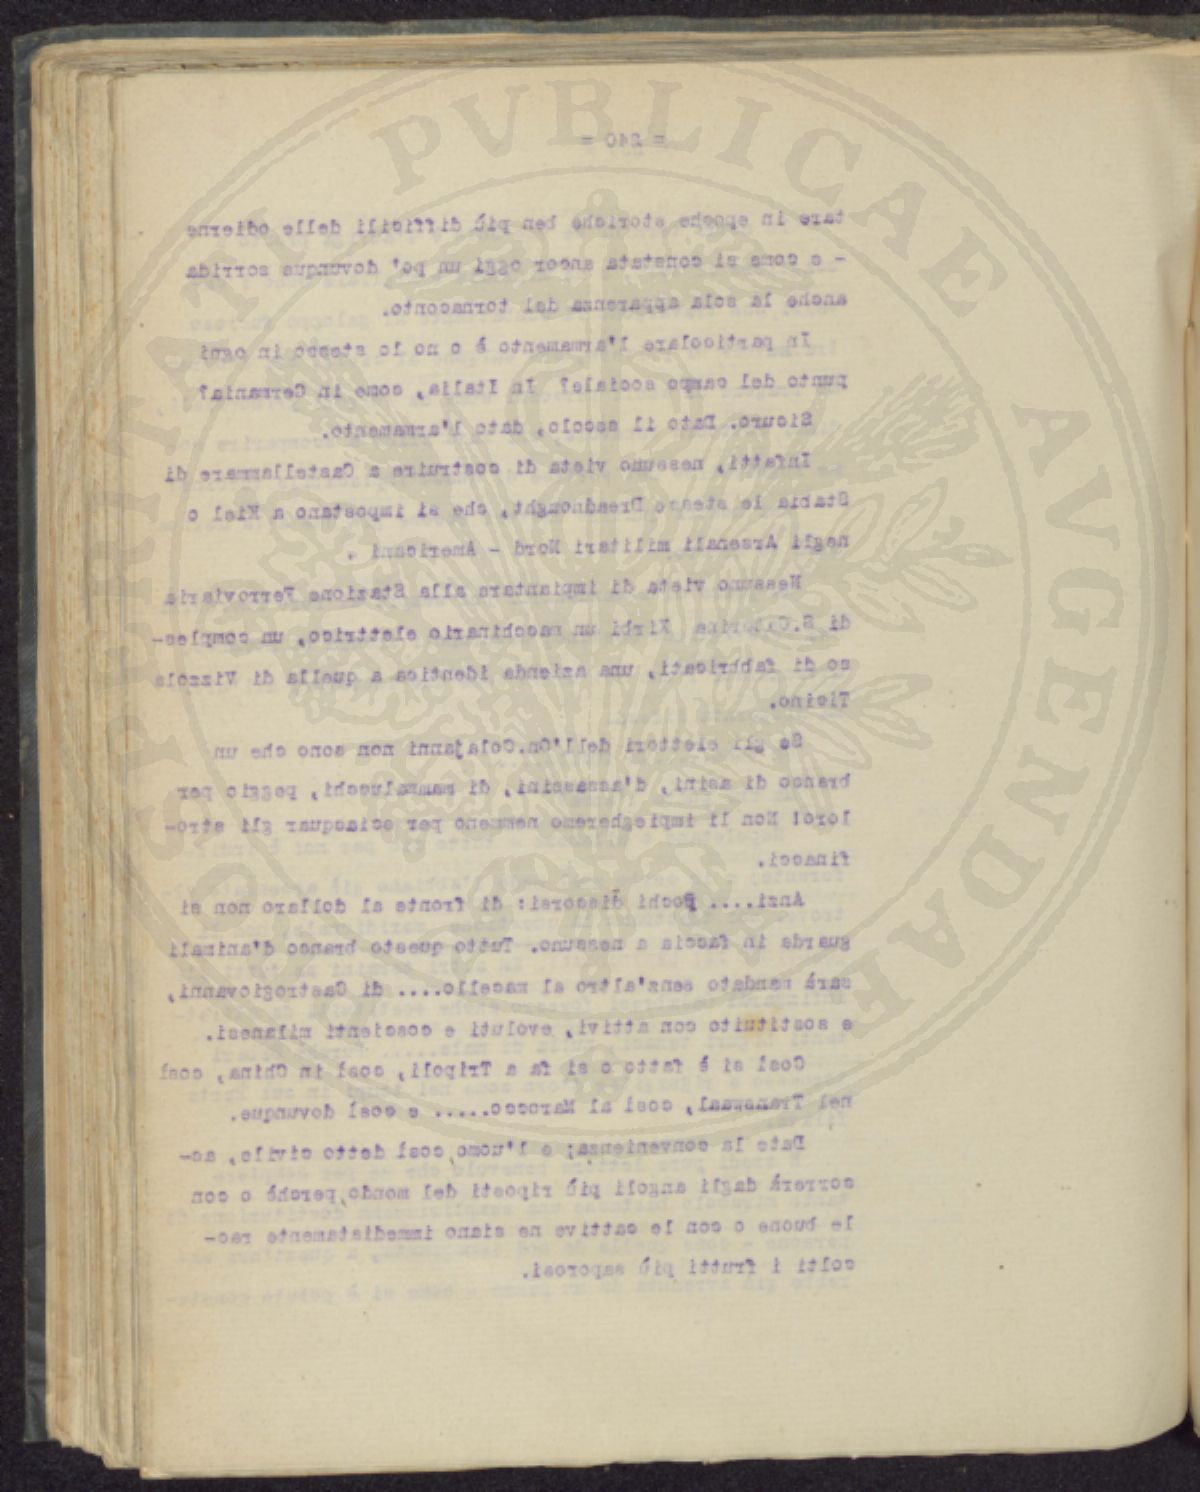 = 240 =
tare in epoche storiche ben più difficili delle odierne
- e come si constata ancor oggi un po' dovunque sorrida
anche la sola apparenza del tornaconto.
In particolare l'armamento è o no lo stesso in ogni
punto del campo sociale? In Italia, come in Germania?
Sicuro. Dato il secolo, dato l'armamento.
Infatti, nessuno vieta di costruire a Castellammare di
Stabia le stesse Dreadnought, che si impostano a Kiel o
negli Arsenali militari Nord - Americani .
Nessuno vieta di impiantare alla Stazione Ferroviaria
di S.Caterina Xirbi un macchinario elettrico, un comples-
so di fabbricati, una azienda identica a quella di Vizzola
Ticino.
Se gli elettori dell'On.Colajanni non sono che un
branco di asini, d'assassini, di mammalucchi, peggio per
loro! Non li impiegheremo nemmeno per sciacquar gli stro-
finacci.
Anzi.... Pochi discorsi: di fronte al dollaro non si
guarda in faccia a nessuno. Tutto questo branco d'animali
sarà mandato senz'altro al macello.... di Castrogiovanni,
e sostituito con attivi, evoluti e coscienti milanesi.
Così si è fatto o si fa a Tripoli, così in China, così
nel Transwaal, così al Marocco...... e così dovunque.
Data la convenienza; e l'uomo, così detto civile, ac-
correrà dagli angoli più riposti del mondo, perchè o con
le buone o con le cattive ne siano immediatamente rac-
colti i frutti più saporosi.
PVBLICAE AVGENDAE